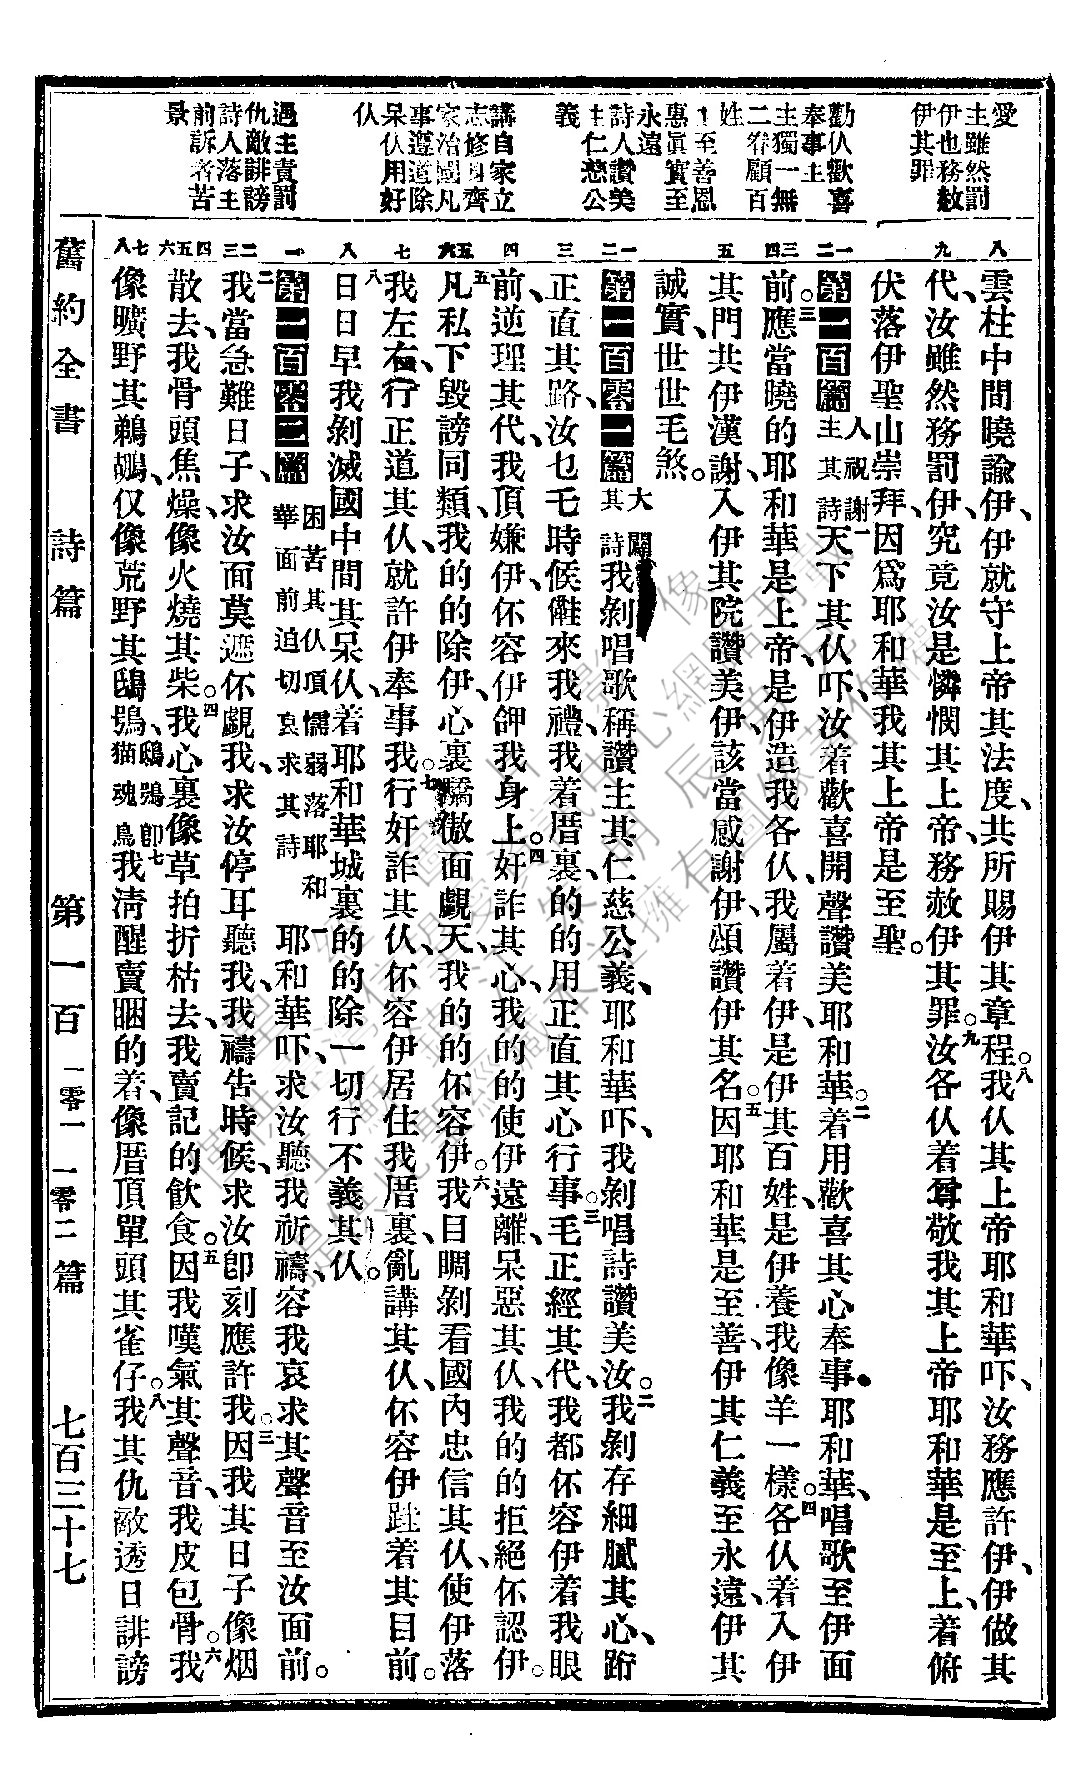 愛
主雖然罰
伊也務赦
伊其罪
勸仈歡喜
奉事主
主獨一無
二眷顧百
姓
主至善恩
惠眞實至
永遠
詩人讚美
主仁慈公
義
講自家立
志修身齊
家治國凡
事遵道除
呆仈用好
仈
遇主責罰
仇敵誹謗
詩人落主
前訴者苦
景
八
雲柱中間曉諭伊、伊就守上帝其法度、共所賜伊其章程。八我仈其上帝耶和華吓、汝務應許伊、伊做其
九
代、汝雖然務罰伊、究竟汝是憐憫其上帝、務赦伊其罪。九汝各仈着尊敬我其上帝耶和華是至上、着俯
伏落伊聖山崇拜、因爲耶和華我其上帝是至聖。
一二
第一百篇 人祝謝主其詩 一天下其仈吓、汝着歡喜開聲讚美耶和華。二着用歡喜其心奉事耶和華、唱歌至伊面
三四
前。三應當曉的耶和華是上帝、是伊造我各仈、我屬着伊、是伊其百姓、是伊養我像羊一樣。四各仈着入伊
五
其門共伊漢謝、入伊其院讚美伊、該當感謝伊、頌讚伊其名。五因耶和華是至善、伊其仁義至永遠、伊其
誠實、世世毛煞。
一二
第一百零一篇 大闢其詩 我剝唱歌稱讚主其仁慈公義、耶和華吓、我剝唱詩讚美汝。二我剝存細膩其心、跻
三
正直其路、汝乜乇時候儺來我禮、我着厝裏的的用正直其心行事。三乇正經其代、我都伓容伊着我眼
四
前、逆理其代、我頂嫌伊、伓容伊鉀我身上。四奸詐其心、我的的使伊遠離、呆惡其仈、我的的拒絕伓認伊。
五六
五凡私下毀謗同類、我的的除伊、心裏驕傲面覷天、我的的伓容伊。六我目睭剝看國內忠信其仈、使伊落
七
我左右、行正道其仈、就許伊奉事我。七行奸詐其仈、伓容伊居住我厝裏、亂講其仈、伓容伊跬着其目前。
八
八日日早我剝滅國中間其呆仈、着耶和華城裏的的除一切行不義其仈。
一
第一百零二篇 困苦其仈頂懦弱落耶和華面前迫切哀求其詩 一耶和華吓、求汝聽我祈禱、容我哀求其聲音至汝面前。
二三
二我當急難日子、求汝面莫遮伓覷我、求汝停耳聽我、我禱告時候、求汝卽刻應許我。三因我其日子像烟
四五六
散去、我骨頭焦燥、像火燒其柴。四我心裏像草拍折枯去、我賣記的飮食。五因我嘆氣其聲音、我皮包骨。六我
七八
像曠野其鵜鶘、仅像荒野其鴟鴞、鴟鴞卽貓魂鳥 七我淸醒賣睏的着、像厝頂單頭其雀仔。八我其仇敵透日誹謗
舊約全書 詩篇 第一百 一零一 一零二 篇 七百三十七